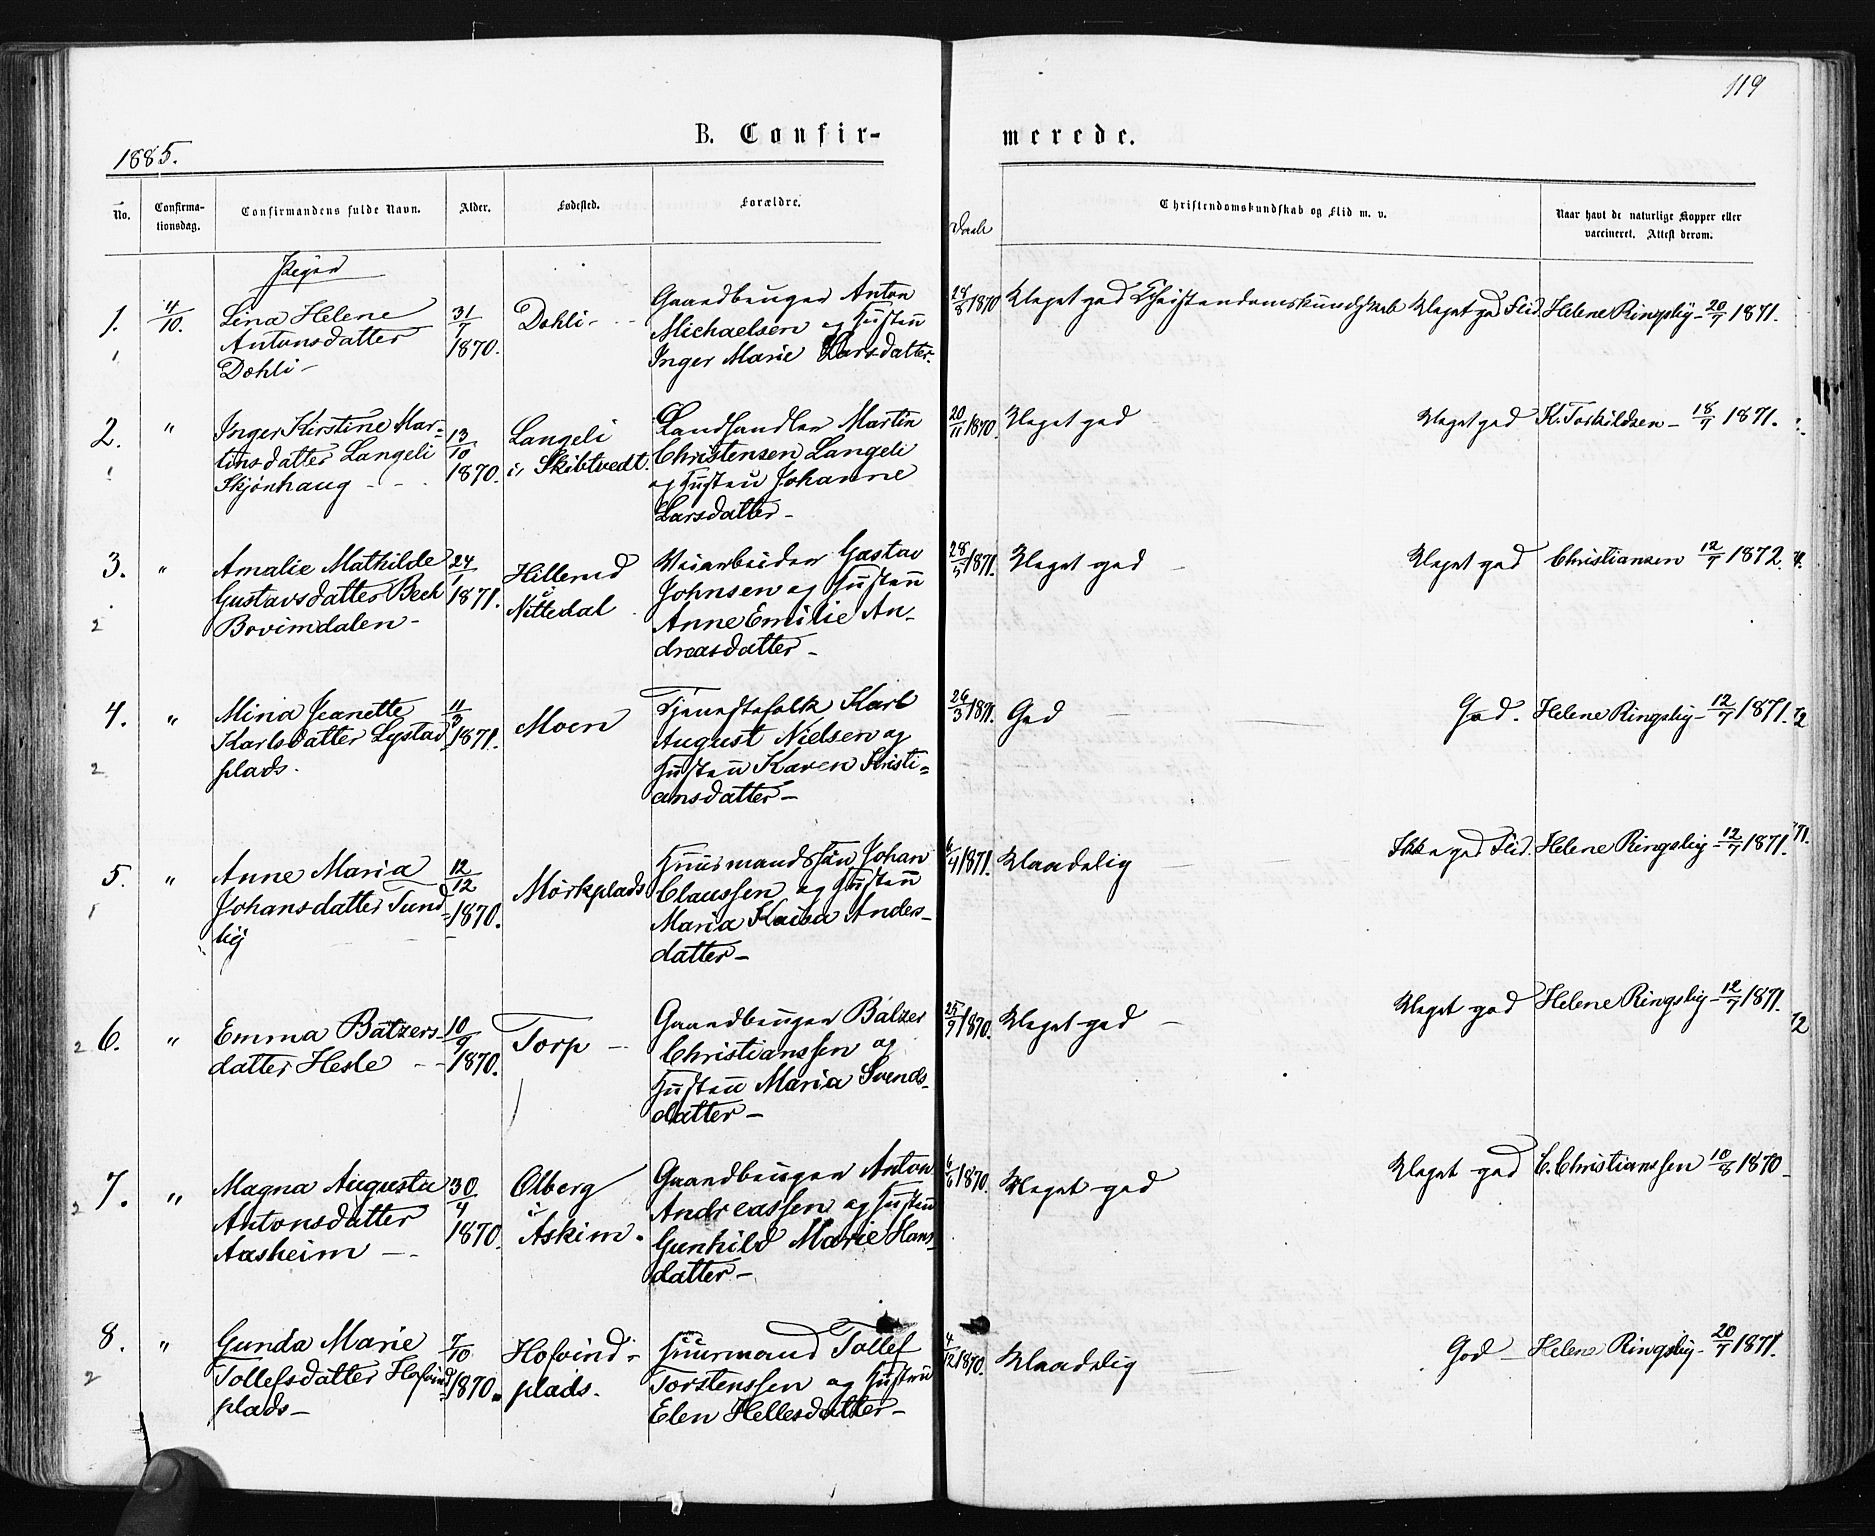 119
1885.
B. Confir-
merede.
No.
Confirma-
tionsdag.
Confirmandens fulde Navn.
Alder.
Fødested.
Forældre.
Daab
Christendomskundskab og Flid m. v.
Naar havt de naturlige Kopper eller
vaccineret. Attest derom.
Piger
1. 4/10. Lina Helene
Antonsdatter
Dohli-
31/7
1870.
Dohli-
Gaardbruger Anton
Michaelsen og Hustru
Inger Marie Larsdatter.
28/8 1870
Meget god Christendomskundskab Meget god Flid.
Helene Ringsby - 20/7 1871.
2. " Inger Kirstine Mar-
tinsdatter Langeli
Skjønhaug - -
13/10
1870.
Langeli
i Skibtvedt.
Landhandler Martin
Christensen Langeli
og Hustru Johanne
Larsdatter-
20/11 1870.
Meget god
Meget god
K. Torkildsen - 18/7 1871.
3. " Amalie Mathilde
Gustavsdatter Bech
Bovimdalen-
24/1
1871.
Hillerud
i
Nittedal
Veiarbeider Gustav
Johnsen og Hustru
Anne Emilie An-
dreasdatter-
28/5 1871.
Meget god
Meget god
Christiansen 12/7 1872.
4. " Mina Jeanette
Karlsdatter Lystad
plads.
11/3
1871.
Moen
Tjenestefolk Karl
August Nielsen og
Hustru Karen Kristi-
ansdatter-
26/3 1871.
God
God.
Helene Ringsby - 12/7 1871.
5. " Anne Maria
Johansdatter Tund
by
12/12
1870.
Mørkplads
Huusmandssøn Johan
Claussen og Hustru
Maria Kaisa Anders-
datter-
6/4 1871.
Maadelig
Ikke god Flid.
Helene Ringsby - 12/7 1871.
6. " Emma Balzers-
datter Hesle - -
10/9
1870.
Torp -
Gaardbruger Balzer
Christianssen og
Hustru Maria Svends-
datter-
25/9 1870.
Meget god -
Meget god
Helene Ringsby - 12/7 1871.
7. " Magna Augusta
Antonsdatter
Aasheim -
30/4
1870.
Olberg
i
Askim.
Gaardbruger Anton
Andreassen og Hustru
Gunhild Marie Hans-
datter-
6/6 1870.
Meget god
Meget god
C. Christianssen 10/8 1870-
8. " Gunda Marie
Tollefsdatter Hofvind
plads-
7/10
1870.
Hofvind-
plads.
Huusmand Tollef
Torstenssen og Hustru
Elen Hellesdatter-
4/12 1870.
Maadelig
God -
Helene Ringsby - 20/7 1871.